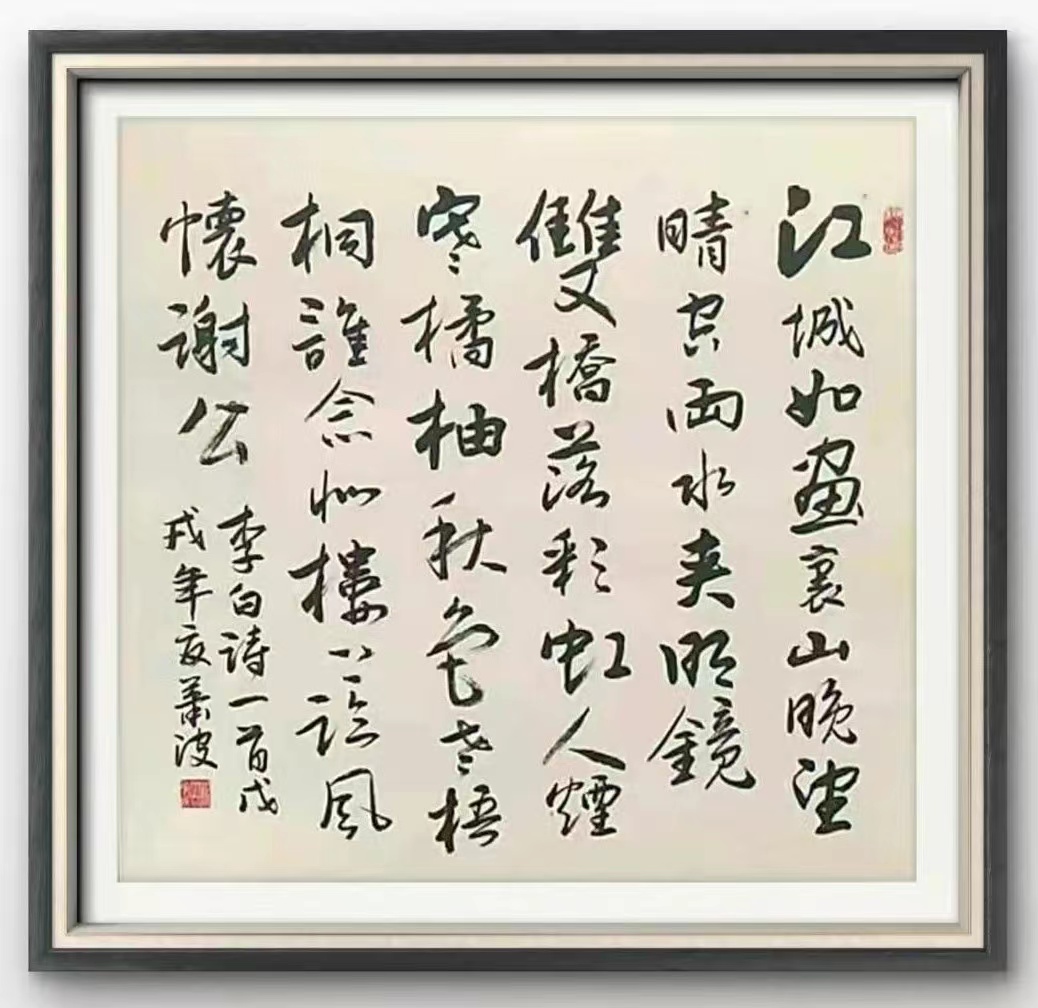 江城如畫裏山晚望
晴空兩水夾明鏡
雙橋落彩虹人煙
寒橘柚秋色老梧
桐誰念北樓上臨風
懷謝公
李白詩一首戊
戌年夏蕭波